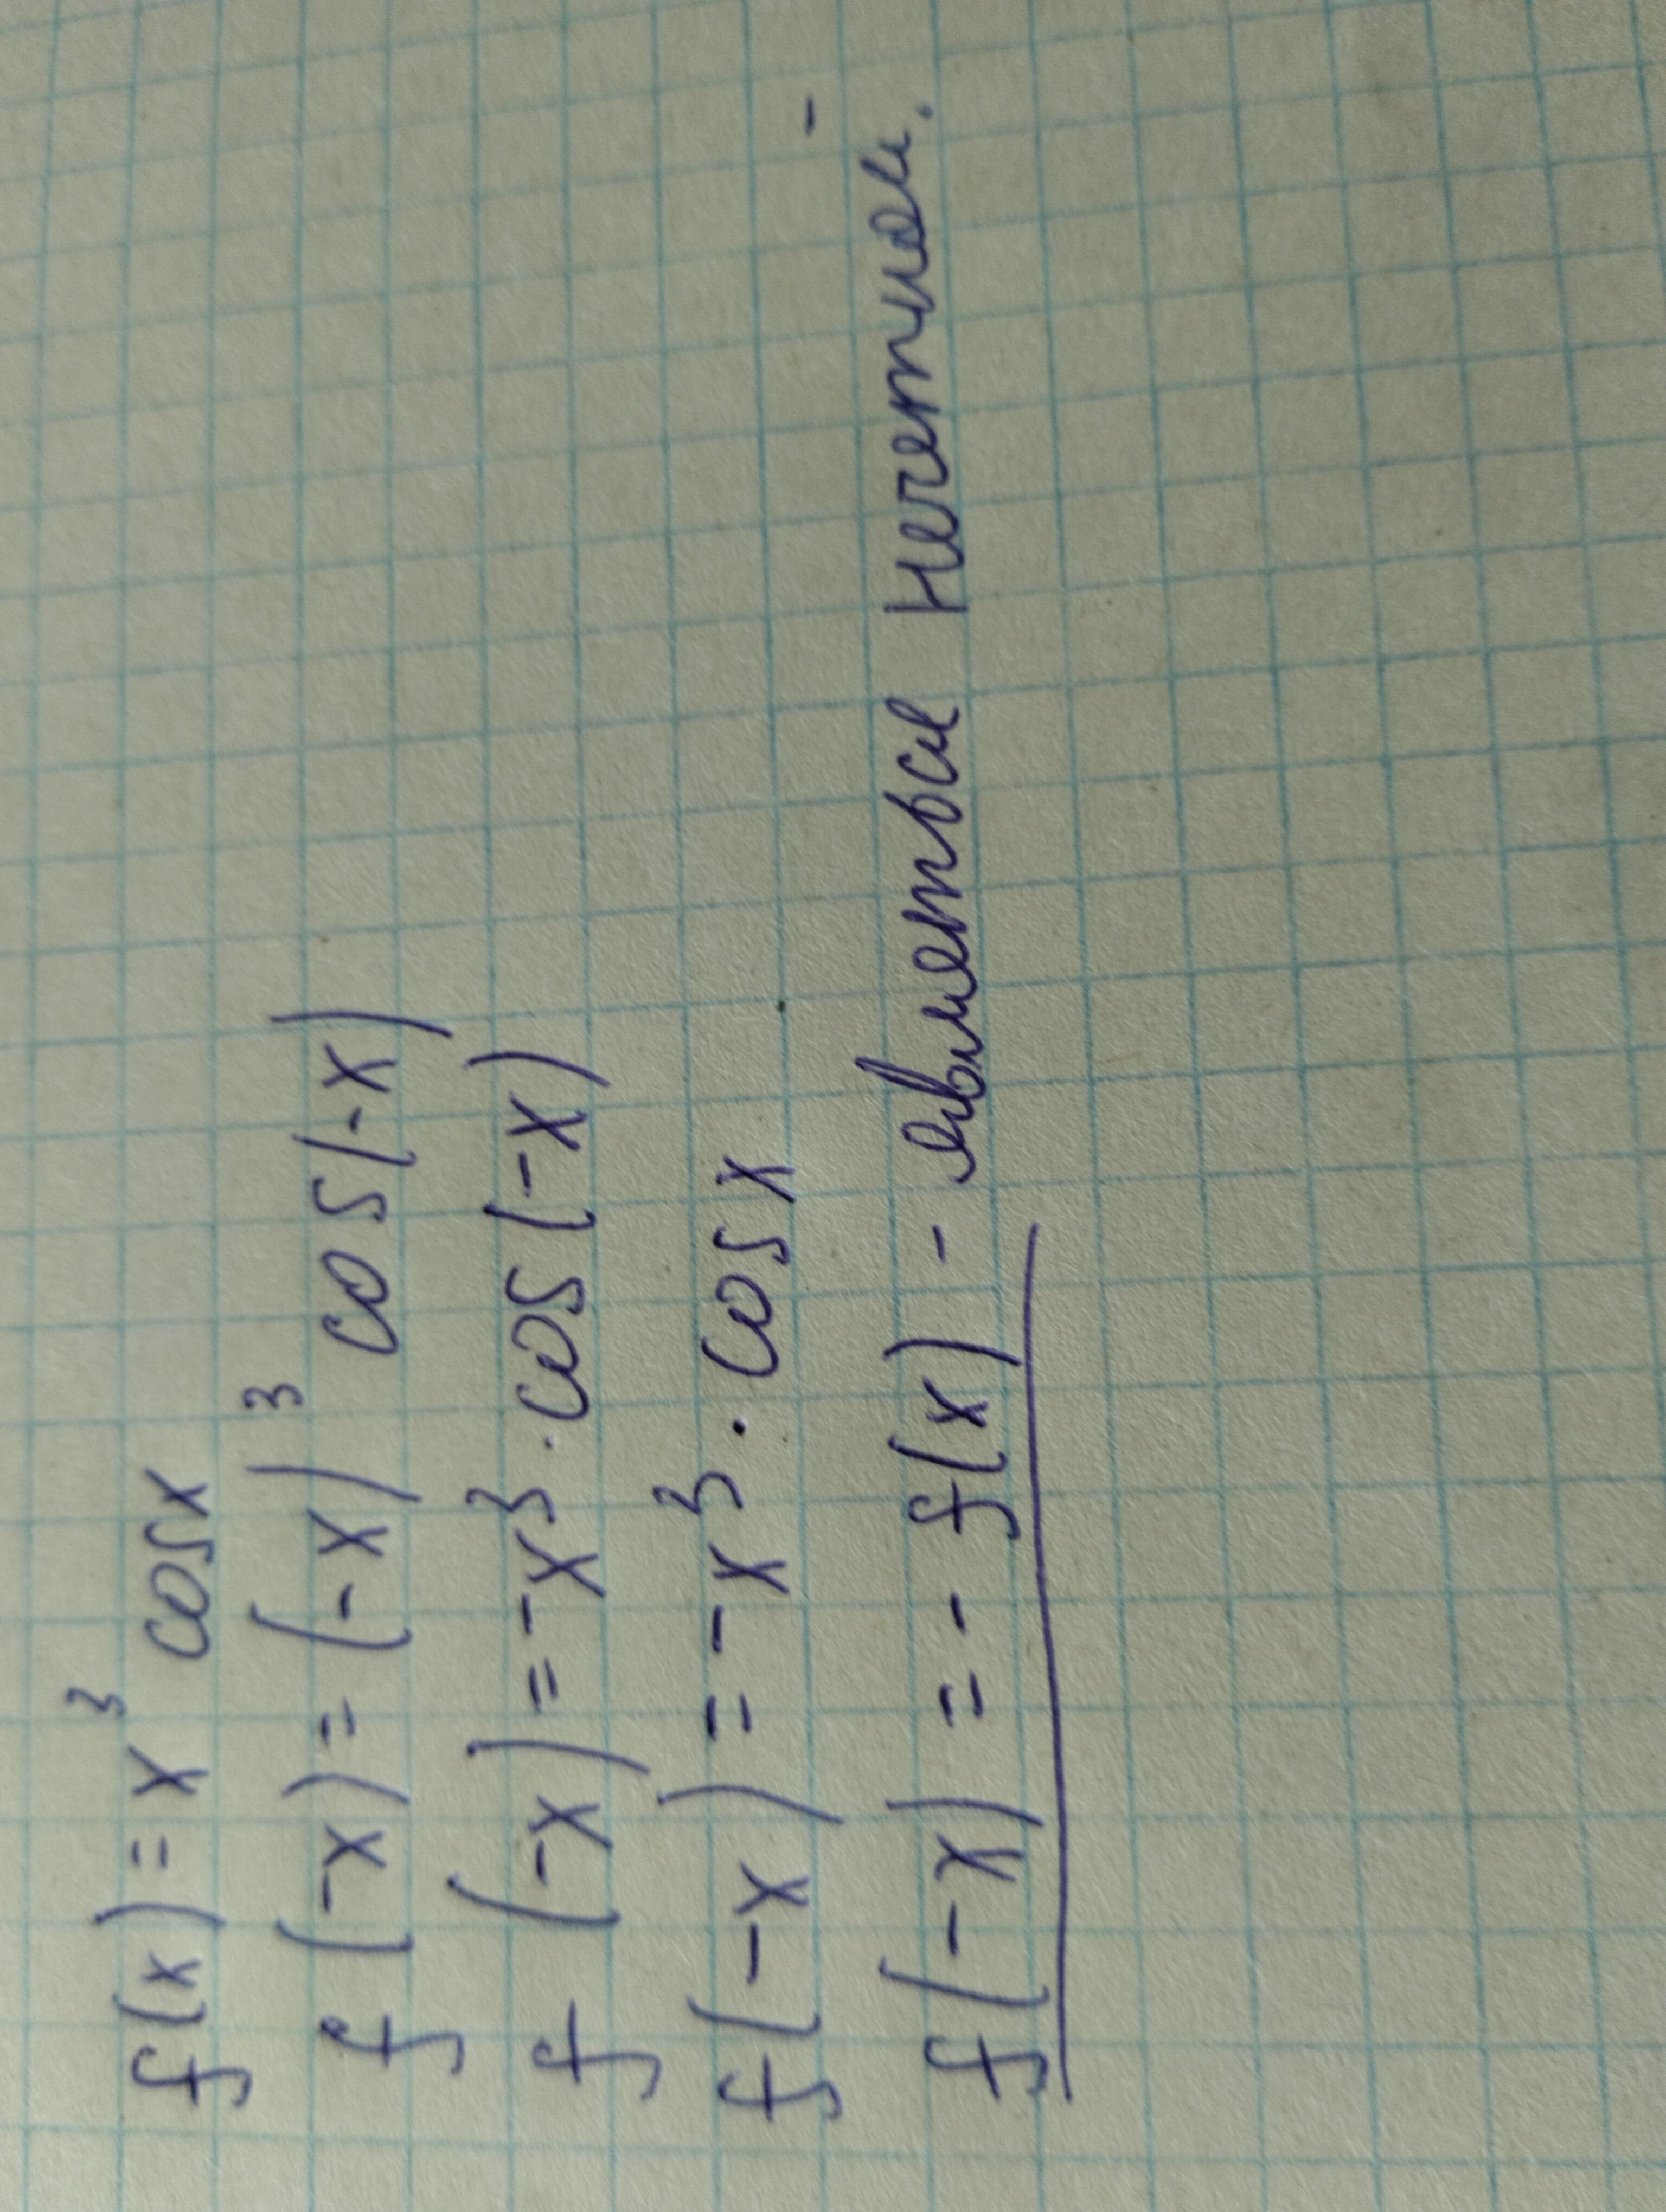 f(x) = x³ cosx
f(-x) = (-x)³ cos(-x)
f(-x) = -x³ · cos(-x)
f(-x) = -x³ · cosx
f(-x) = - f(x) - являеться нечетной.